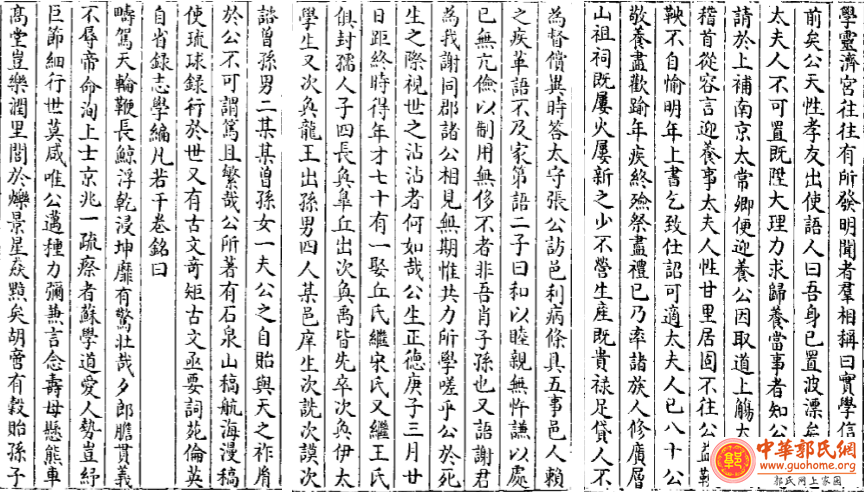 學靈濟宮往往有所發明聞者羣相稱曰實學信
前矣公天性孝友出使語人曰吾身已置波漂矣
太夫人不可置既陞大理力求歸養當事者知公
請於上補南京太常卿便迎養公因取道上觴太
稽首從容言迎養事太夫人性甘里居固不往公
鞅不自愉明年上書乞致仕詔可適太夫人已八十公
敬養盡歡踰年疾終殮祭盡禮已乃率諸族人修廣層
山祖祠既屢火屢新之少不營生產既貴祿足貸人不
為督償異時答太守張公訪邑利病條具五事邑人賴
之疾革語不及家第語二子曰和以睦親無忤謙以處
已無亢儉以制用無侈不者非吾肖子孫也又語謝君
為我謝同郡諸公相見無期惟共力所學嗟乎公於死
生之際視世之沾沾者何如哉公生正德庚子三月廿
日距終時得年才七十有一娶丘氏繼宋氏又繼王氏
俱封孺人子四長奐皐丘出次奐禹皆先卒次奐伊太
學生又次奐龍王出孫男四人某邑庠生次詵次謨次
諮曾孫男二某某曾孫女一夫公之自貽與天之祚胤
於公不可謂篤且繁哉公所著有石泉山稿航海漫稿
使琉球錄行於世又有古文奇矩古文亟要詞苑倫英
自省錄志學編凡若干卷銘曰
疇駕天輪鞭長鯨浮乾浸坤靡有驚壯哉夕郎膽貫義
不辱帝命洵上士京兆一疏瘵者蘇學道愛人勢豈紆
巨節細行世莫咸唯公邁種力彌兼言念壽母懸熊車
高堂豈樂潤里閭於爍景星焱黙矣胡嗇有穀貽孫子
中華郭氏網
www.guohome.org
郭氏网上家園